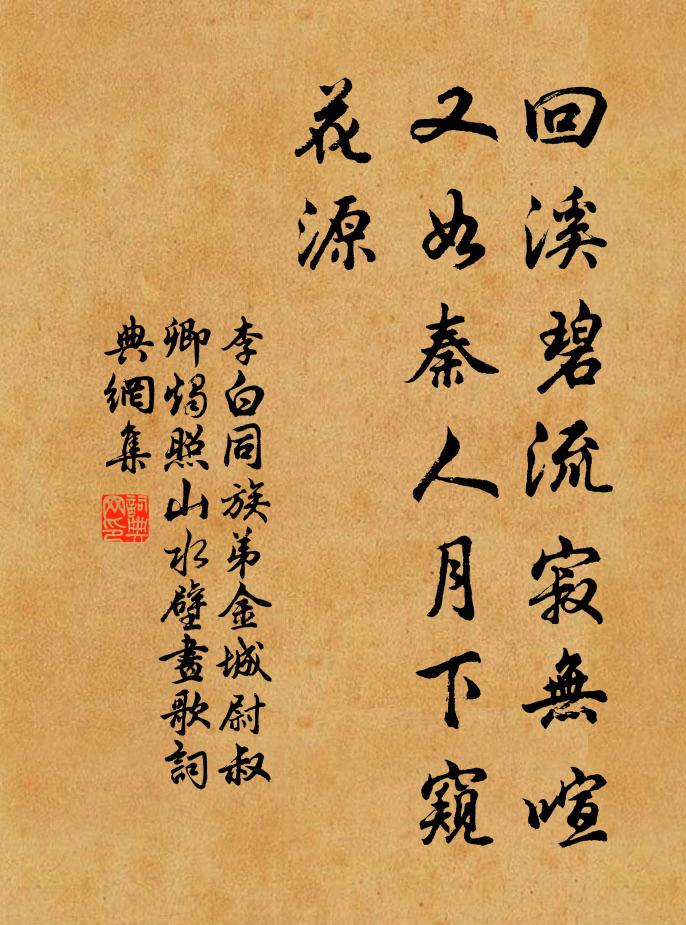 回溪碧流寂無喧
又如秦人月下窺
花源
李白同族弟金城尉叔
卿燭照山水壁畫歌詞
典網集
詞典網印